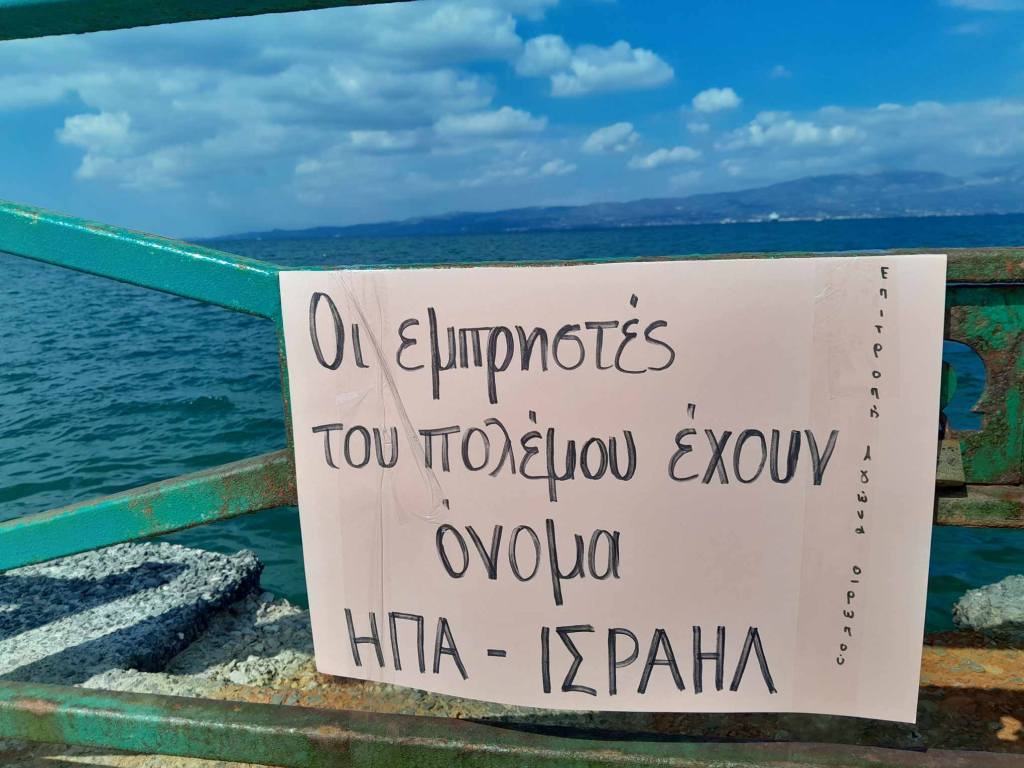 Οι εμπρηστές
του πολέμου έχουν
όνομα
ΗΠΑ - ΙΣΡΑΗΛ
Επιτροπή λιμένα